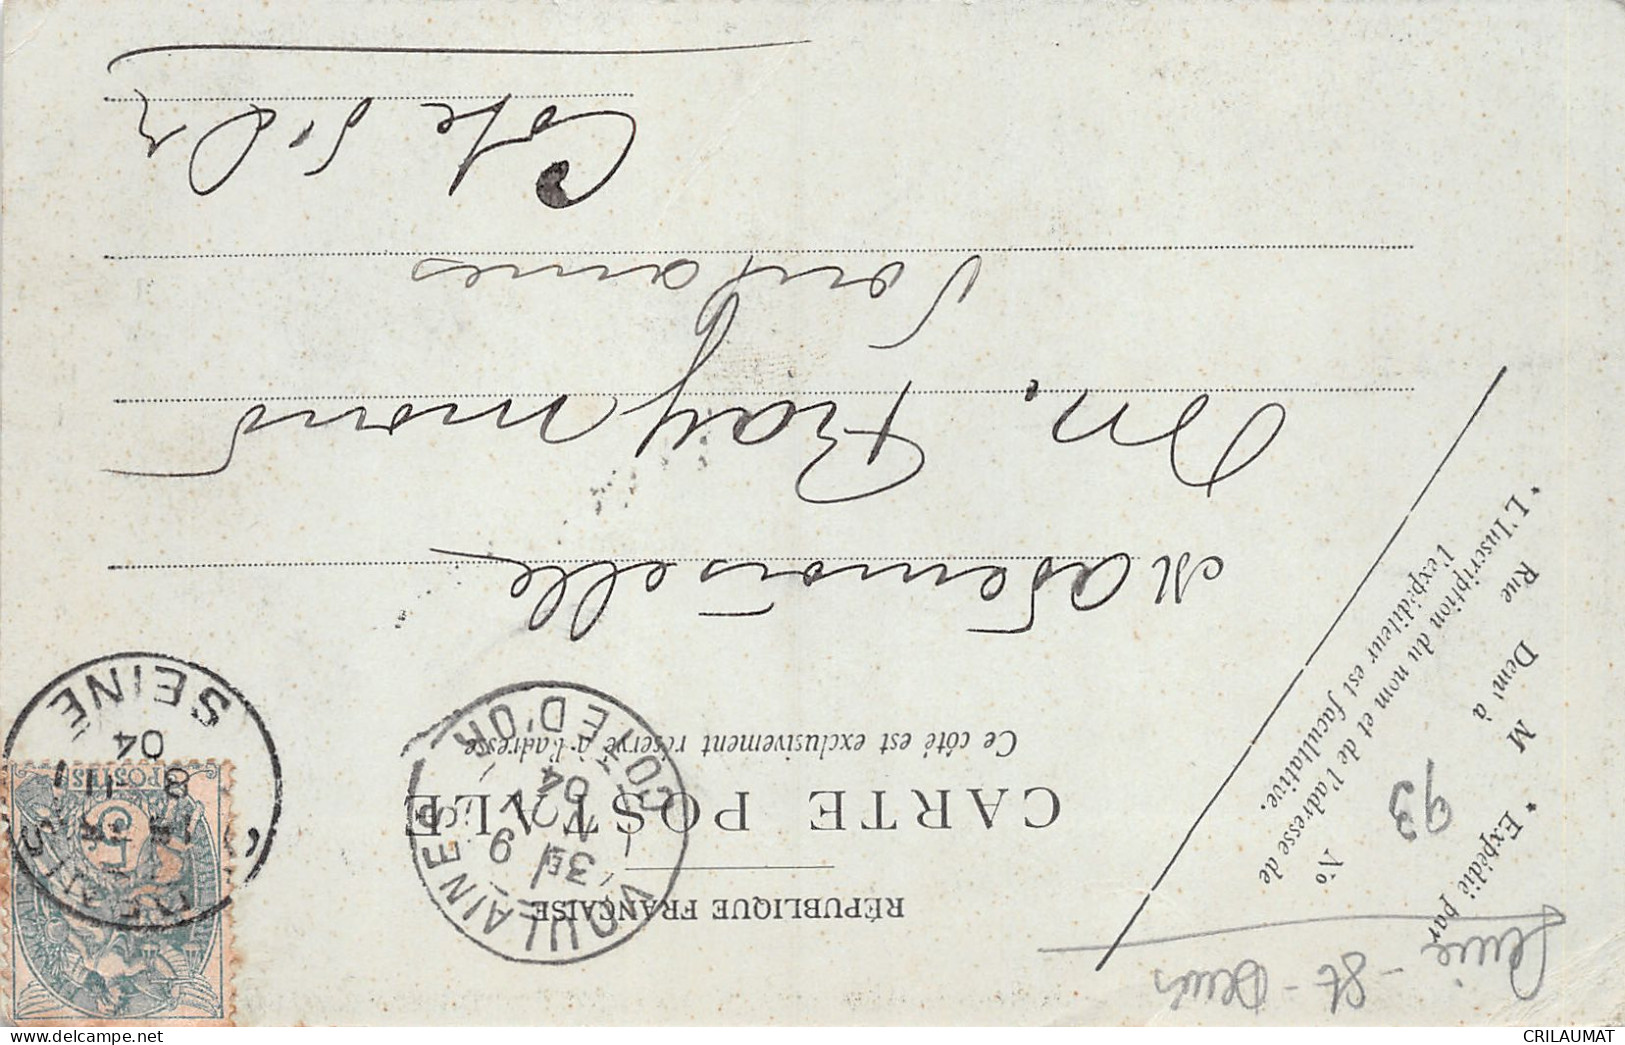 RÉPUBLIQUE FRANÇAISE
CARTE POSTALE
Ce côté est exclusivement réservé à l'adresse
* Expédié par
M
Demt à
Rue
No
* L'Inscription du nom et de l'adresse de
l'expéditeur est facultative.
Seine - St - Denis
93
Mademoiselle
M. Raymond
Fontaines
Côte d'Or
VOULAINES
3E
9
04
CÔTE D'OR
8 11
04
SEINE
POSTES
CRILAUMAT